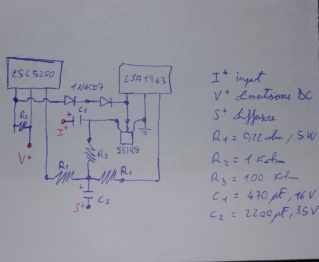 2SC5200
1N4007
2SA1943
C1
I+
R2
V+
R3
R1
R1
C2
S+
I+ input
V+ alimentazione DC
S+ diffusore
R1 = 0,22 ohm, 5W
R2 = 1 Kohm
R3 = 100 Kohm
C1 = 470 µF, 16V
C2 = 2200 µF, 35V